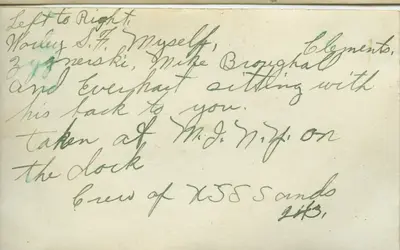 Left to Right.
Worley S.F. Myself, Clements,
Zygnerski, Mike Broughal
and Everhart sitting with
his back to you.
taken at M.I. N.Y. on
the dock
Crew of USS Sands
243.